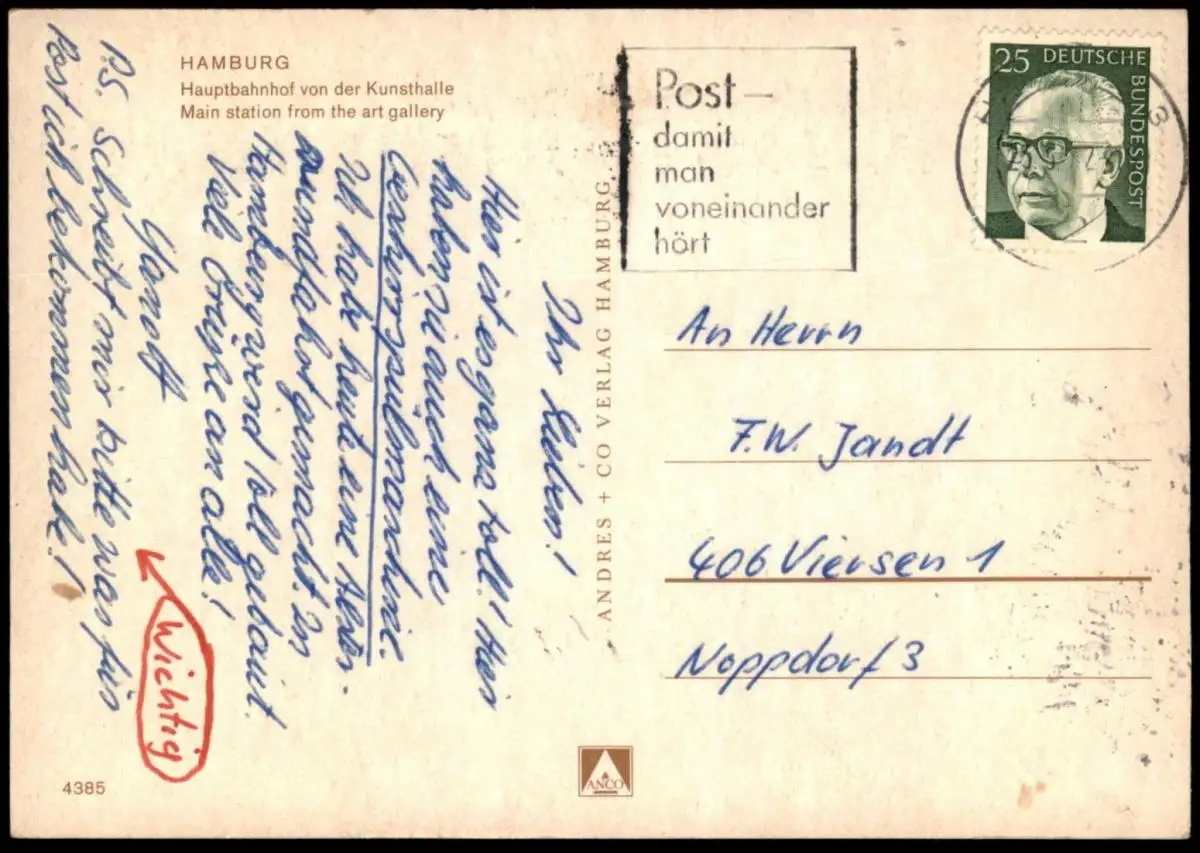 HAMBURG
Hauptbahnhof von der Kunsthalle
Main station from the art gallery
Post –
damit
man
voneinander
hört
25 DEUTSCHE BUNDESPOST
Ihr Lieben!
Hier ist es ganz toll! Hier
haben sie auch eine
Geschirrspülmaschine.
Ich habe heute eine Alster-
rundfahrt gemacht. In
Hamburg wird toll gebaut.
Viele Grüße an alle!
P.S. Schreibt mir bitte was für
Post ich bekommen habe!
Wichtig
An Herrn
F.W. Jandt
406 Viersen 1
Noppdorf 3
ANDRES + CO VERLAG HAMBURG
ANCO
4385